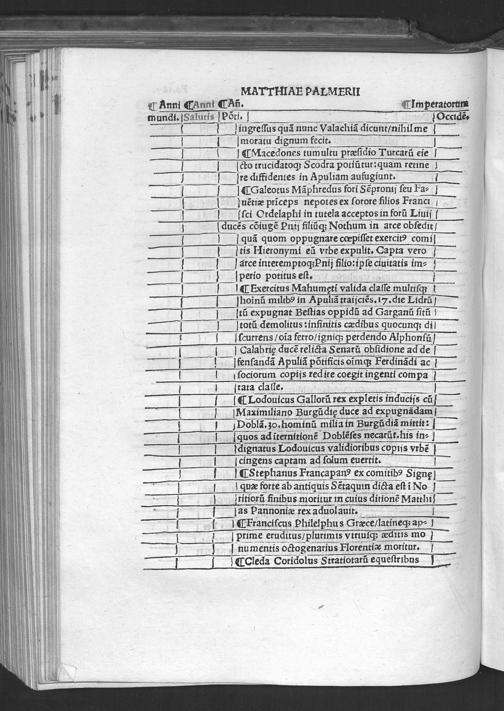 MATTHIAE PALMERII
¶Anni ¶Anni ¶Añ. ¶Imperatorum
mundi. Salutis Põti. Occidẽ.
ingressus quã nunc Valachiã dicunt/nihil me
moratu dignum fecit.
¶Macedones tumultu præsidio Turcarũ eie
cto trucidatoq; Scodra potiũtur: quam retine
re diffidentes in Apuliam aufugiunt.
¶Galeotus Mãphredus fori Sẽpronij seu Fa-
uẽtiæ prĩceps nepotes ex sorore filios Franci
sci Ordelaphi in tutela acceptos in forũ Liuij
ducẽs cõiugẽ Pnij filiũq; Nothum in arce obsedit
quã quom oppugnare cœpisset exercitꝰ comi
tis Hieronymi eũ vrbe expulit. Capta vero
arce interemptoq; Pnij filio: ipse ciuitatis im-
perio potitus est.
¶Exercitus Mahumeti valida classe multisq;
hoinũ milibꝰ in Apuliã traijciẽs .17. die Lidrũ
tũ expugnat Bestias oppidũ ad Garganũ sitũ
totũ demolitus: infinitis cædibus quocunq; di
scurrens/oĩa ferro/igniq; perdendo Alphonsũ
Calabrię ducẽ relicta Senarũ obsidione ad de
fensandã Apuliã põtificis oĩmq; Ferdinãdi ac
sociorum copijs redire coegit ingenti compa
rata classe.
¶Lodouicus Gallorũ rex expletis inducijs cũ
Maximiliano Burgũdię duce ad expugnãdam
Doblã .30. hominũ milia in Burgũdiã mittit:
quos ad iternitionẽ Doblẽses necarũt. his in-
dignatus Lodouicus validioribus copiis vrbẽ
cingens captam ad solum euertit.
¶Stephanus Francapanꝰ ex comitibꝰ Signę
quæ forte ab antiquis Sẽtaquin dicta est ĩ No
ritiorũ finibus moritur in cuius ditionẽ Matthi
as Pannoniæ rex aduolauit.
¶Franciscus Philelphus Græce/latineq; ap-
prime eruditus/plurimis vtriusq; æditis mo
numentis octogenarius Florentiæ moritur.
¶Cleda Coridolus Stratiotarũ equestribus